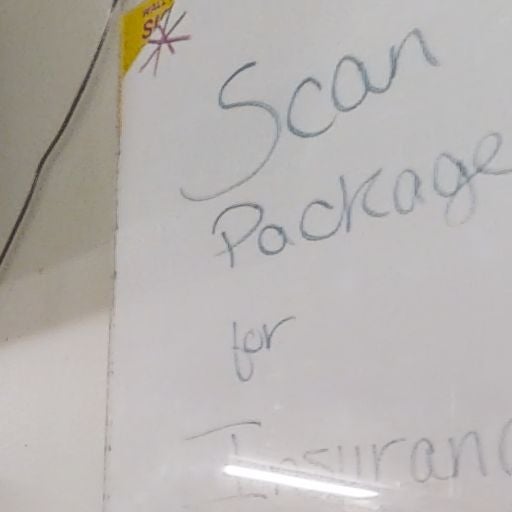 Scan
Package
for
Insuranc